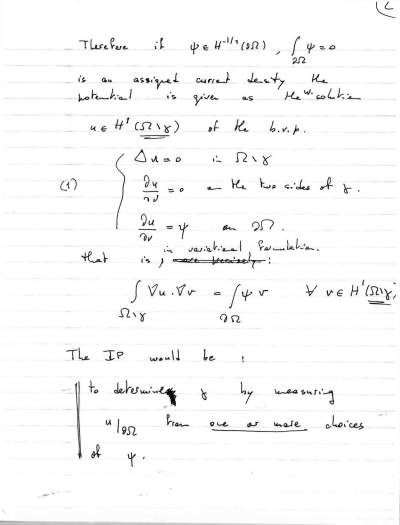 2
Therefore if ψ ∈ H^{-1/2}(∂Ω), ∫_{∂Ω} ψ = 0
is an assigned current density the
potential is given as the w. solution
u ∈ H^1(Ω\γ) of the b.v.p.
(1) { Δu = 0 in Ω\γ
∂u/∂ν = 0 on the two sides of γ.
∂u/∂ν = ψ on ∂Ω.
in variational formulation.
that is, more precisely:
∫_{Ω\γ} ∇u·∇v = ∫_{∂Ω} ψ v ∀ v ∈ H^1(Ω\γ)
The IP would be :
to determine γ by measuring
u|_{∂Ω} from one or more choices
of ψ.